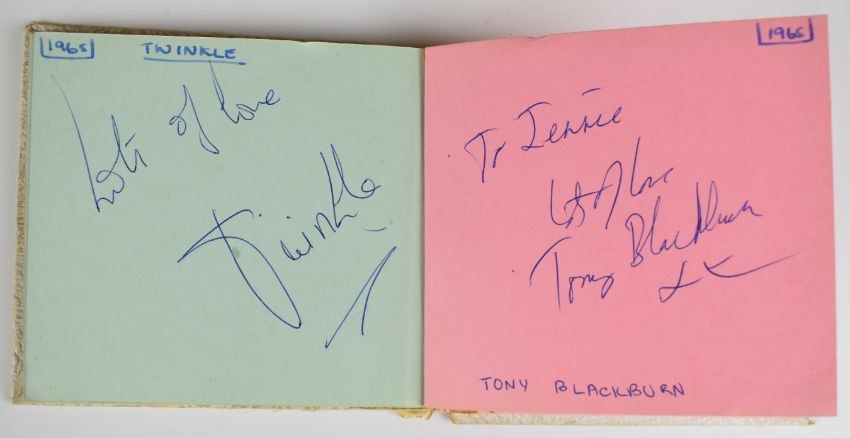 1965 TWINKLE
Lots of love
Twinkle
1965
To Jennie
Lots of love
Tony Blackburn
xx
TONY BLACKBURN